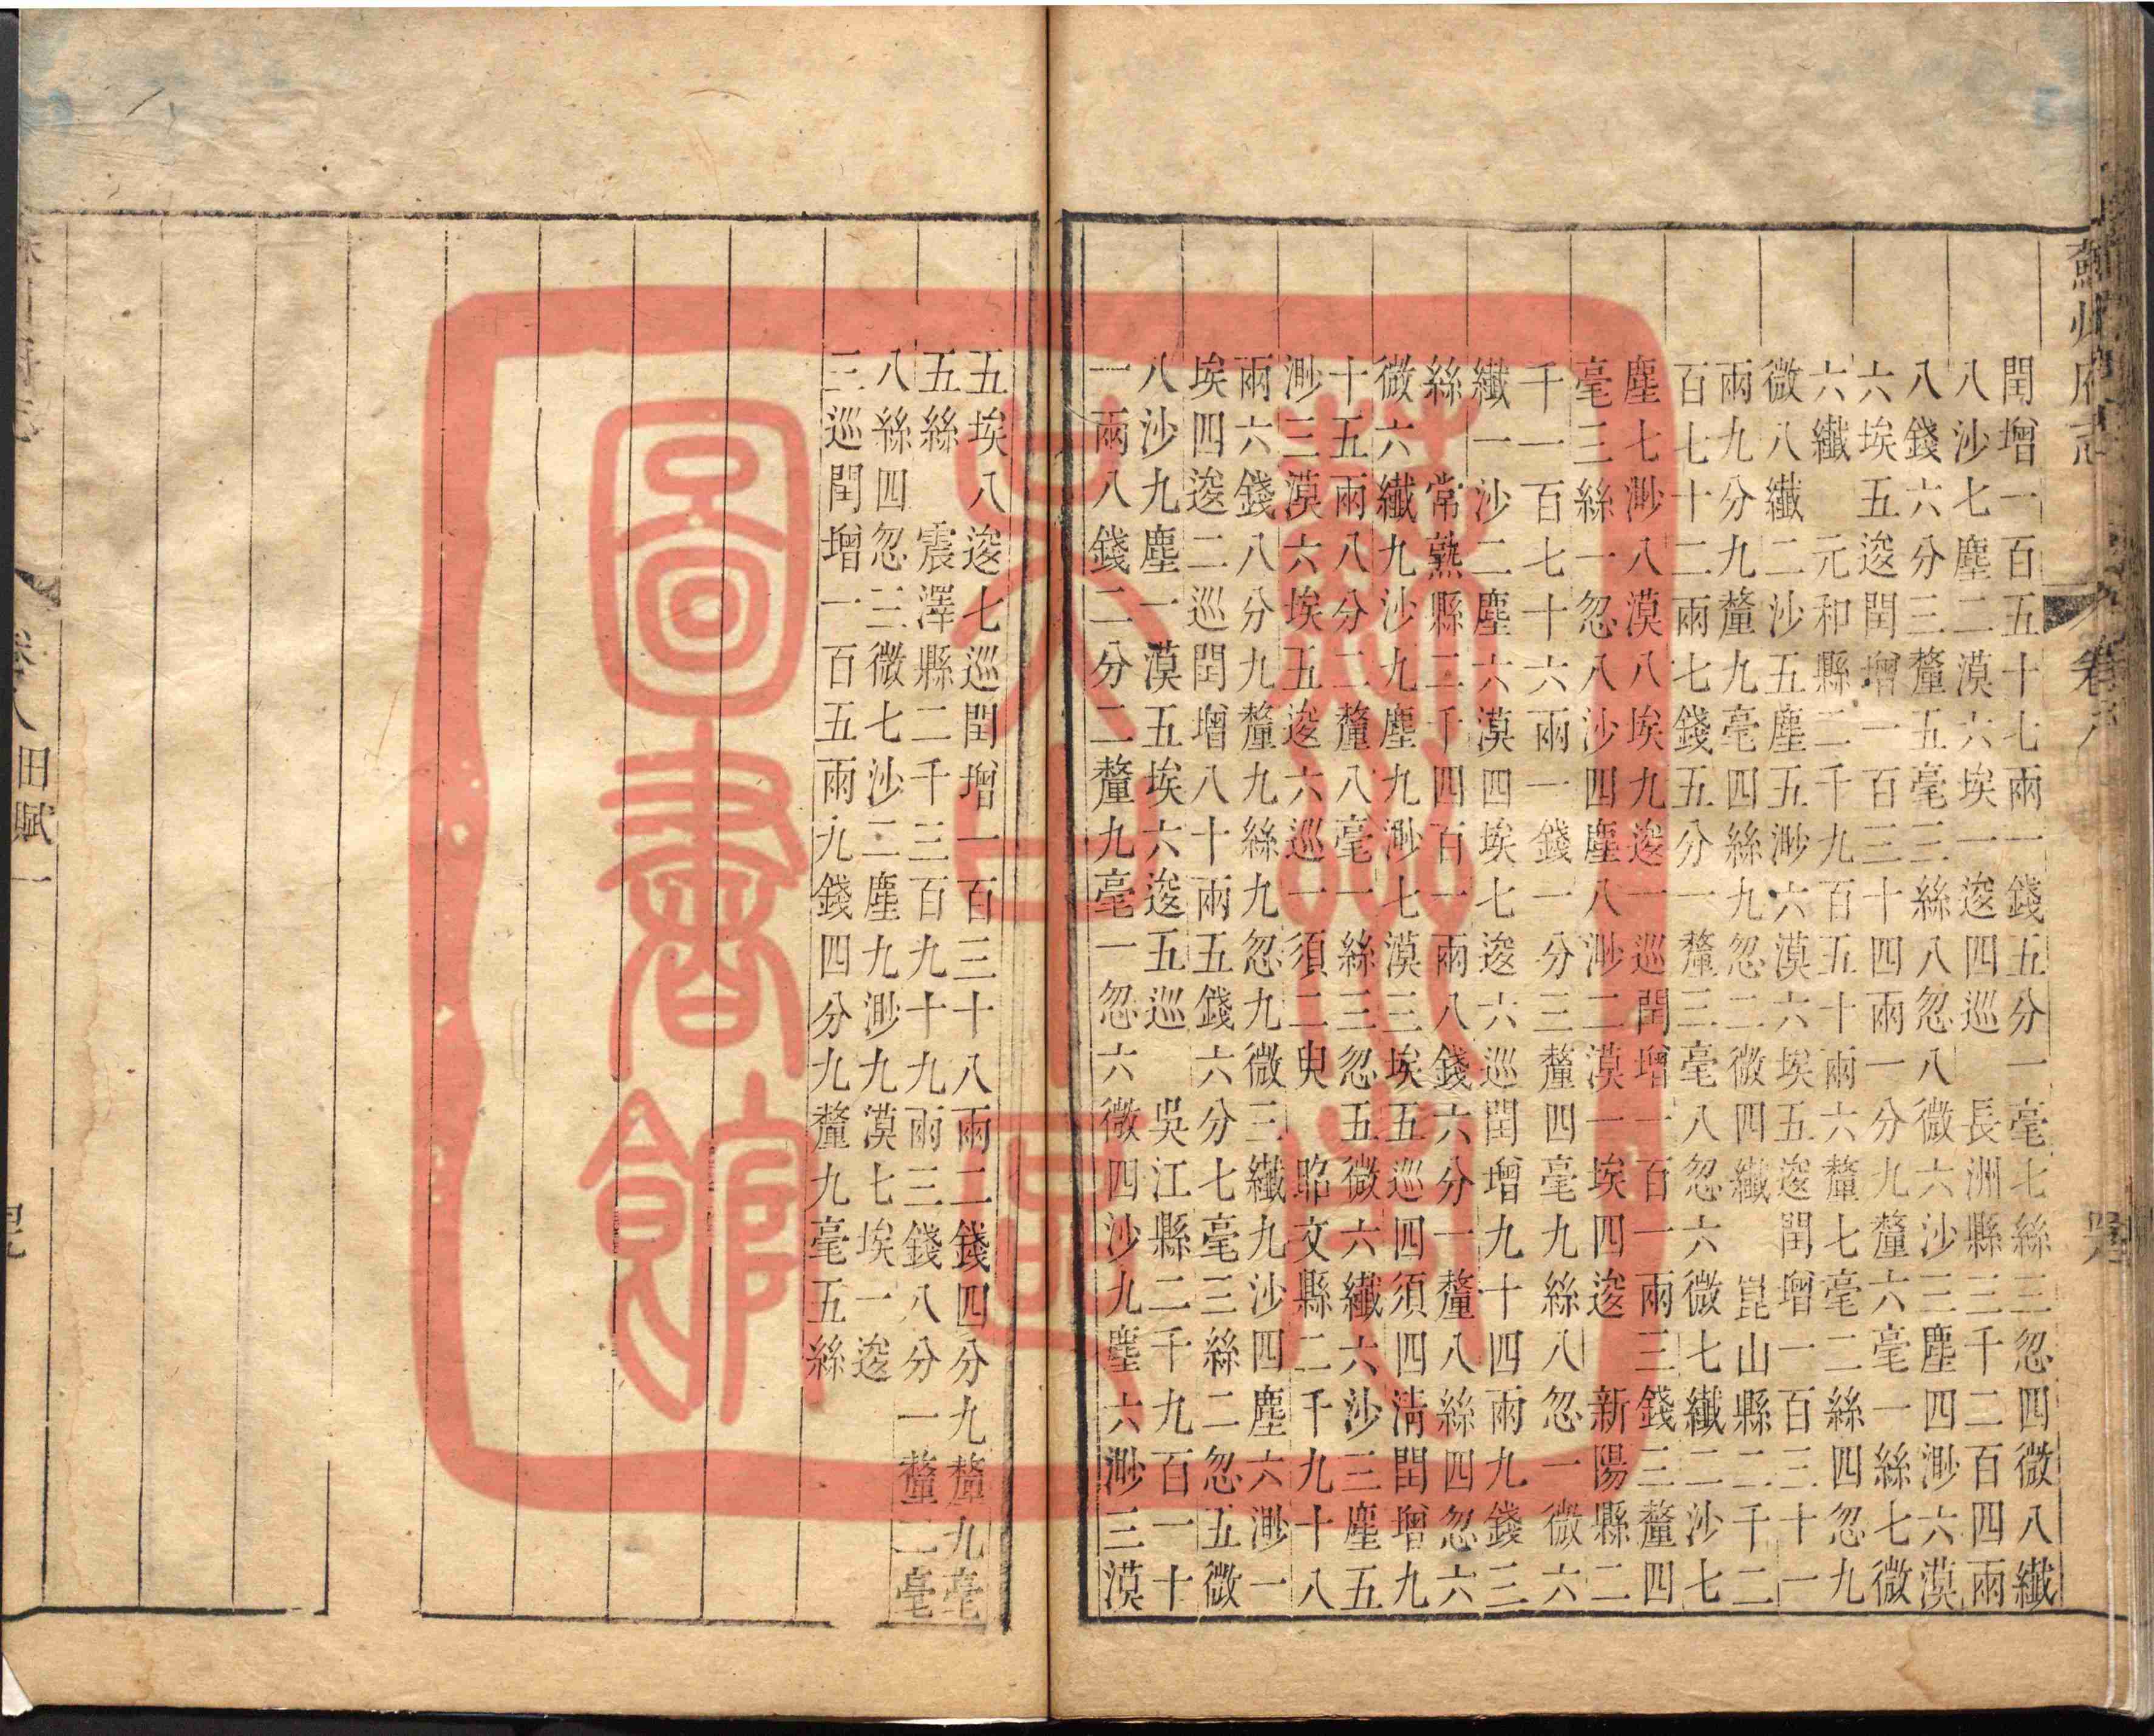 蘇州府志
卷八
閏增一百五十七兩一錢五分一毫七絲三忽四微八纖
八沙七塵二漠六埃一逡四巡 長洲縣三千二百四兩
八錢六分三釐五毫三絲八忽八微六沙三塵四渺六漠
六埃五逡閏增一百三十四兩一分九釐六毫一絲七微
六纖 元和縣二千九百五十兩六釐七毫二絲四忽九
微八纖二沙五塵五渺六漠六埃五逡閏增一百三十一
兩九分九釐九毫四絲九忽二微四纖 崑山縣二千二
百七十二兩七錢五分一釐三毫八忽六微七纖二沙七
塵七渺八漠八埃九逡一巡閏增一百一兩三錢三釐四
毫三絲一忽八沙四塵八渺二漠一埃四逡 新陽縣二
千一百七十六兩一錢一分三釐四毫九絲八忽一微六
纖一沙二塵六漠四埃七逡六巡閏增九十四兩九錢三
絲 常熟縣二千四百一兩八錢六分一釐八絲四忽六
微六纖九沙九塵九渺七漠三埃五巡四須四淸閏增九
十五兩八分二釐八毫一絲三忽五微六纖六沙三塵五
渺三漠六埃五逡六巡一須二臾 昭文縣二千九十八
兩六錢八分九釐九絲九忽九微三纖九沙四塵六渺一
埃四逡二巡閏增八十兩五錢六分七毫三絲二忽五微
八沙九塵一漠五埃六逡五巡 吳江縣二千九百一十
一兩八錢二分二釐九毫一忽六微四沙九塵六渺三漠
五埃八逡七巡閏增一百三十八兩二錢四分九釐九毫
五絲 震澤縣二千三百九十九兩三錢八分一釐二毫
八絲四忽三微七沙二塵九渺九漠七埃一逡
三巡閏增一百五兩九錢四分九釐九毫五絲
田賦一
圖書館